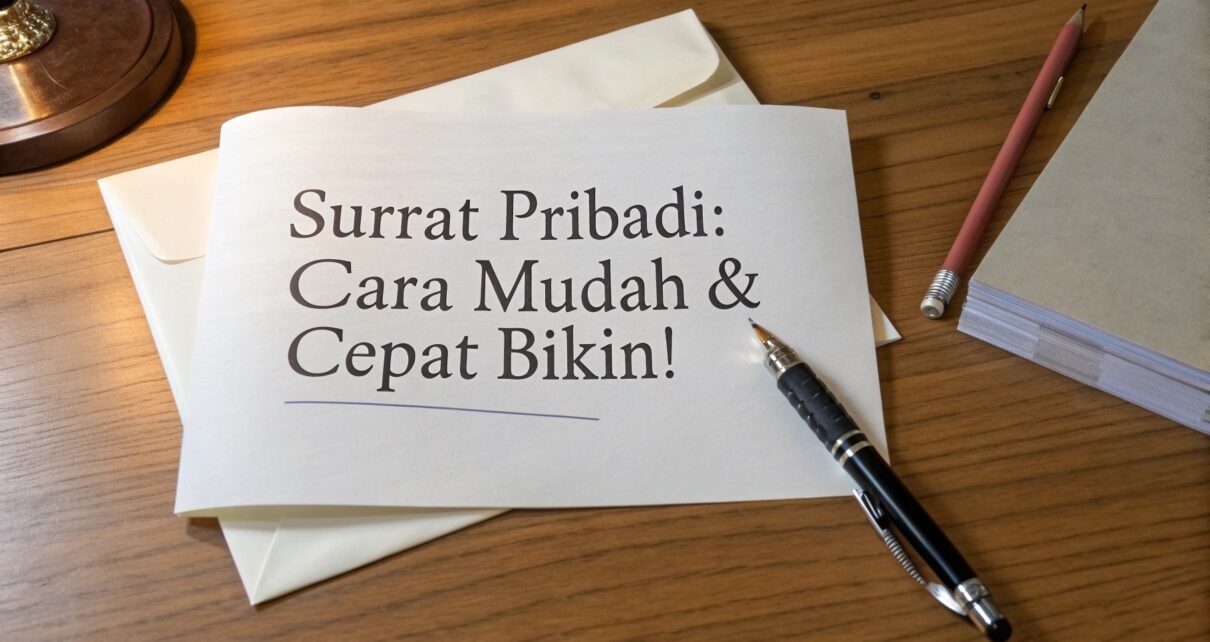 Surrat Pribadi:
Cara Mudah &
Cepat Bikin!